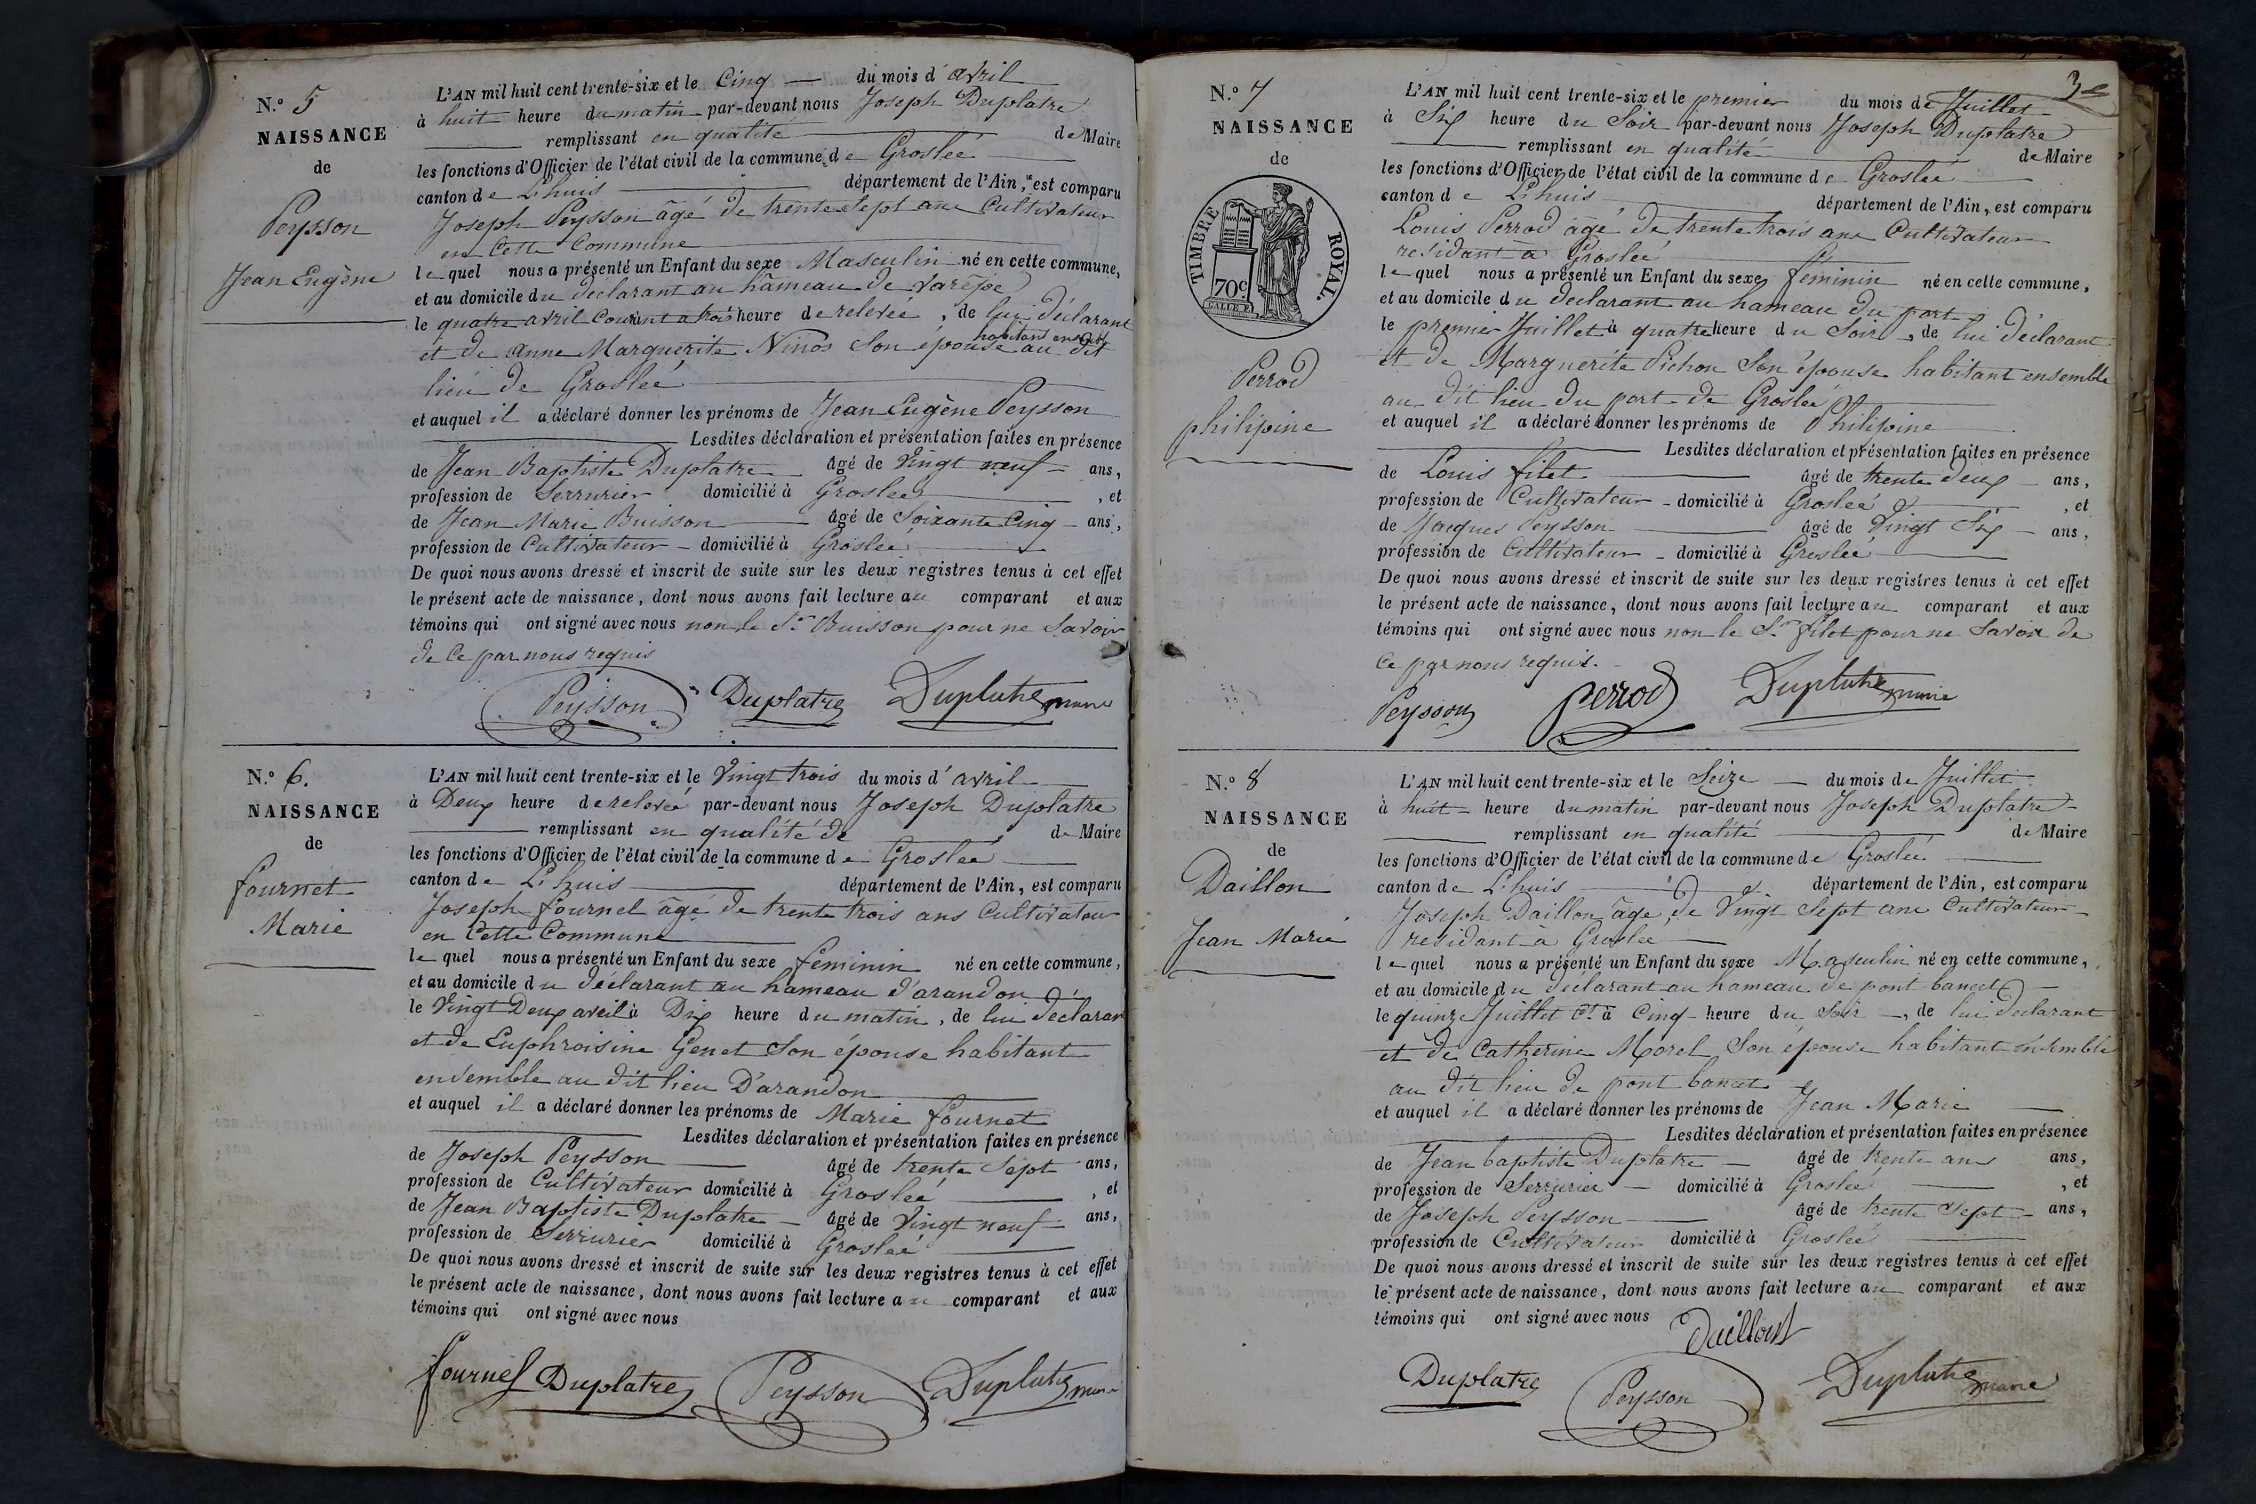 N.º 5
NAISSANCE
de
Peysson
Jean Eugène
L'AN mil huit cent trente-six et le Cinq du mois d'avril
à huit heure du matin par-devant nous Joseph Duplatre
remplissant en qualité de Maire
les fonctions d'Officier de l'état civil de la commune de Groslée
canton de L'huis département de l'Ain, est comparu
Joseph Peysson âgé de trente Sept ans Cultivateur
en Cette Commune
le quel nous a présenté un Enfant du sexe Masculin né en cette commune,
et au domicile du declarant au hâmeau de Varêpe
le quatre avril Courant a trois heure de relevée, de lui déclarant
et de Anne Marguerite Ninos Son épouse habitant ensemble au dit
lieu de Groslée
et auquel il a déclaré donner les prénoms de Jean Eugène Peysson
Lesdites déclaration et présentation faites en présence
de Jean Baptiste Duplatre âgé de Vingt neuf ans,
profession de Serrurier domicilié à Groslée, et
de Jean Marie Buisson âgé de Soixante Cinq ans,
profession de Cultivateur domicilié à Groslée
De quoi nous avons dressé et inscrit de suite sur les deux registres tenus à cet effet
le présent acte de naissance, dont nous avons fait lecture au comparant et aux
témoins qui ont signé avec nous non le Sr Buisson pour ne Savoir
de Ce par nous requis
Peysson Duplatre Duplatre maire
N.º 6.
NAISSANCE
de
fournet
Marie
L'AN mil huit cent trente-six et le Vingt trois du mois d'avril
à Deux heure de relevée par-devant nous Joseph Duplatre
remplissant en qualité de de Maire
les fonctions d'Officier de l'état civil de la commune de Groslée
canton de L'huis département de l'Ain, est comparu
Joseph fournet âgé de trente trois ans Cultivateur
en Cette Commune
le quel nous a présenté un Enfant du sexe feminin né en cette commune,
et au domicile du déclarant au hameau d'arandon
le Vingt Deux avril à Dix heure du matin, de lui déclarant
et de Euphroisine Genet Son épouse habitant
ensemble au dit lieu D'arandon
et auquel il a déclaré donner les prénoms de Marie fournet
Lesdites déclaration et présentation faites en présence
de Joseph Peysson âgé de trente Sept ans,
profession de Cultivateur domicilié à Groslée, et
de Jean Baptiste Duplatre âgé de Vingt neuf ans,
profession de Serrurier domicilié à Groslée
De quoi nous avons dressé et inscrit de suite sur les deux registres tenus à cet effet
le présent acte de naissance, dont nous avons fait lecture au comparant et aux
témoins qui ont signé avec nous
fournet Duplatre Peysson Duplatre maire
3e
N.º 7
NAISSANCE
de
TIMBRE ROYAL.
70c
Perrod
philipine
L'AN mil huit cent trente-six et le premier du mois de Juillet
à Six heure du Soir par-devant nous Joseph Duplatre
remplissant en qualité de Maire
les fonctions d'Officier de l'état civil de la commune de Groslée
canton de L'huis département de l'Ain, est comparu
Louis Perrod âgé de trente trois ans Cultivateur
residant à Groslée
le quel nous a présenté un Enfant du sexe féminin né en cette commune,
et au domicile du declarant au hameau du port
le premier Juillet à quatre heure du Soir, de lui déclarant
et de Marguerite Pichon Son épouse habitant ensemble
au dit lieu du port de Groslée
et auquel il a déclaré donner les prénoms de Philipine
Lesdites déclaration et présentation faites en présence
de Louis filet âgé de trente deux ans,
profession de Cultivateur domicilié à Groslée, et
de Jacques Peysson âgé de Vingt Six ans,
profession de Cultivateur domicilié à Groslée
De quoi nous avons dressé et inscrit de suite sur les deux registres tenus à cet effet
le présent acte de naissance, dont nous avons fait lecture au comparant et aux
témoins qui ont signé avec nous non le Sr. filet pour ne Savoir de
Ce par nous requis.
Peysson perrod Duplatre maire
N.º 8
NAISSANCE
de
Daillon
Jean Marie
L'AN mil huit cent trente-six et le Seize du mois de Juillet
à huit heure du matin par-devant nous Joseph Duplatre
remplissant en qualité de Maire
les fonctions d'Officier de l'état civil de la commune de Groslée
canton de L'huis département de l'Ain, est comparu
Joseph Daillon âge de Vingt Sept ans Cultivateur
residant à Groslée
le quel nous a présenté un Enfant du sexe Masculin né en cette commune,
et au domicile du declarant au hameau de pont bancet
le quinze Juillet Ct à Cinq heure du Soir, de lui declarant
et de Catherine Morel Son épouse habitant ensemble
au dit lieu de pont bancet
et auquel il a déclaré donner les prénoms de Jean Marie
Lesdites déclaration et présentation faites en présence
de Jean baptiste Duplatre âgé de trente ans ans,
profession de Serrurier domicilié à Groslée, et
de Joseph Peysson âgé de trente Sept ans,
profession de Cultivateur domicilié à Groslée
De quoi nous avons dressé et inscrit de suite sur les deux registres tenus à cet effet
le présent acte de naissance, dont nous avons fait lecture au comparant et aux
témoins qui ont signé avec nous
Daillont
Duplatre Peysson Duplatre maire